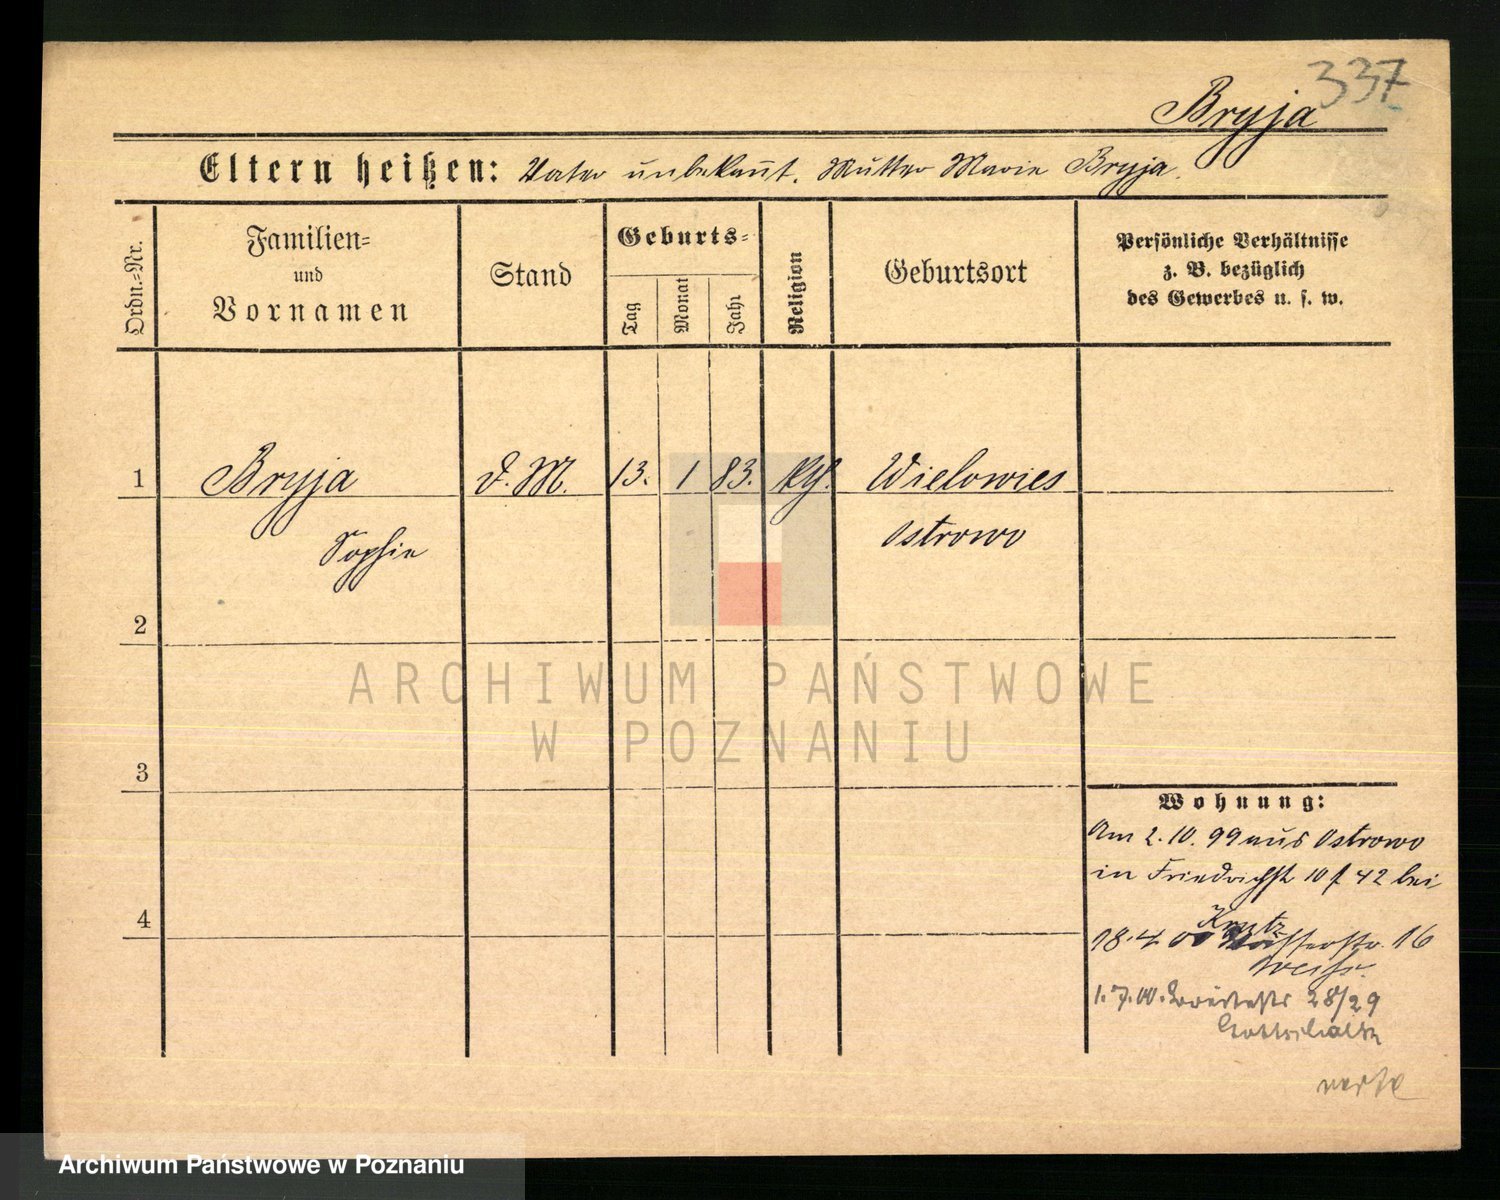 337
Bryja
Eltern heißen: Vater unbekannt. Mutter Marie Bryja.
Ordn.-Nr.
Familien-
und
Vornamen
Stand
Geburts-
Tag
Monat
Jahr
Religion
Geburtsort
Persönliche Verhältnisse
z. B. bezüglich
des Gewerbes u. s. w.
1 Bryja D. M. 13. 1 83. kth. Wielowies
Sophie Ostrowo
2
ARCHIWUM PAŃSTWOWE
W POZNANIU
3
Wohnung:
Am 2.10.99 aus Ostrowo
in Friedrichstr 10 42 bei
4
18.4 00 Wasserstr. 16
1.7.00. 28/29
Archiwum Państwowe w Poznaniu